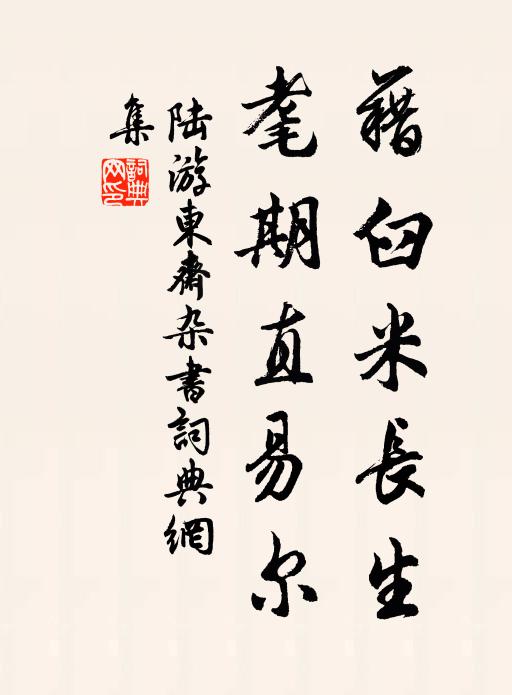 藉臼米長生
耄期直易尔
陆游東齋杂書詞典網
集
詞典
网印